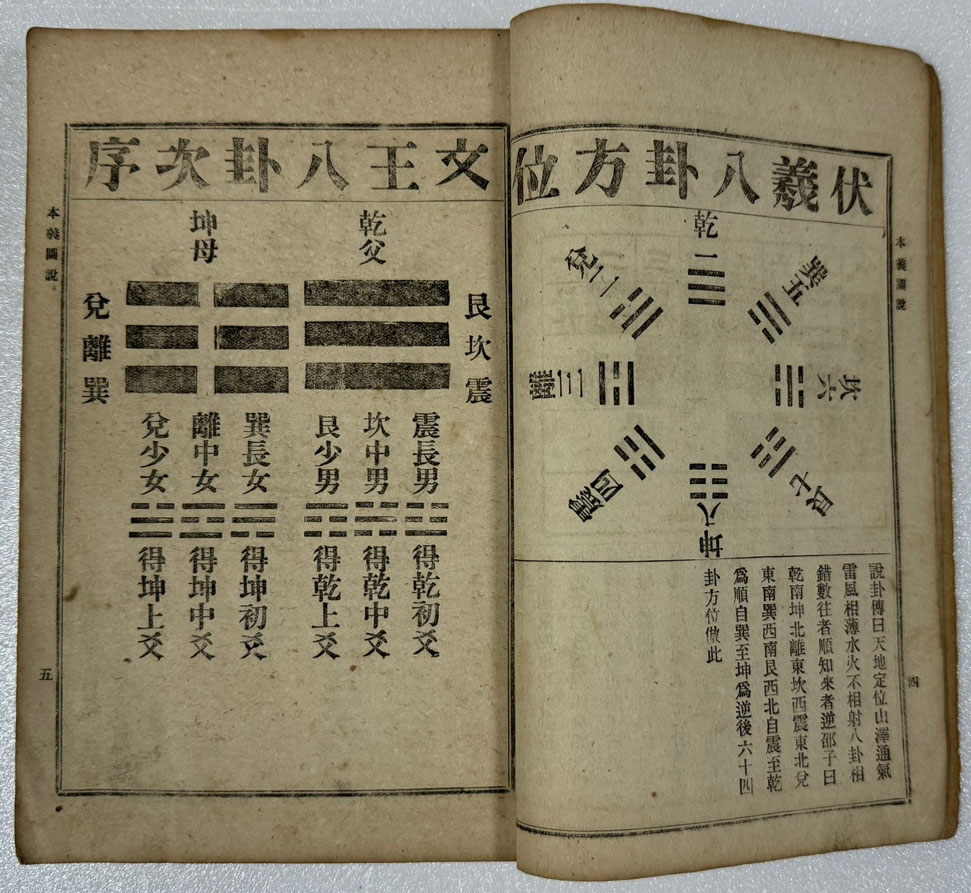 伏羲八卦方位
乾一
兌二
離三
震四
巽五
坎六
艮七
坤八
說卦傳曰天地定位山澤通氣
雷風相薄水火不相射八卦相
錯數往者順知來者逆邵子曰
乾南坤北離東坎西震東北兌
東南巽西南艮西北自震至乾
爲順自巽至坤爲逆後六十四
卦方位倣此
本義圖說
四
文王八卦次序
乾父
坤母
艮坎震
兌離巽
震長男
得乾初爻
坎中男
得乾中爻
艮少男
得乾上爻
巽長女
得坤初爻
離中女
得坤中爻
兌少女
得坤上爻
本義圖說
五